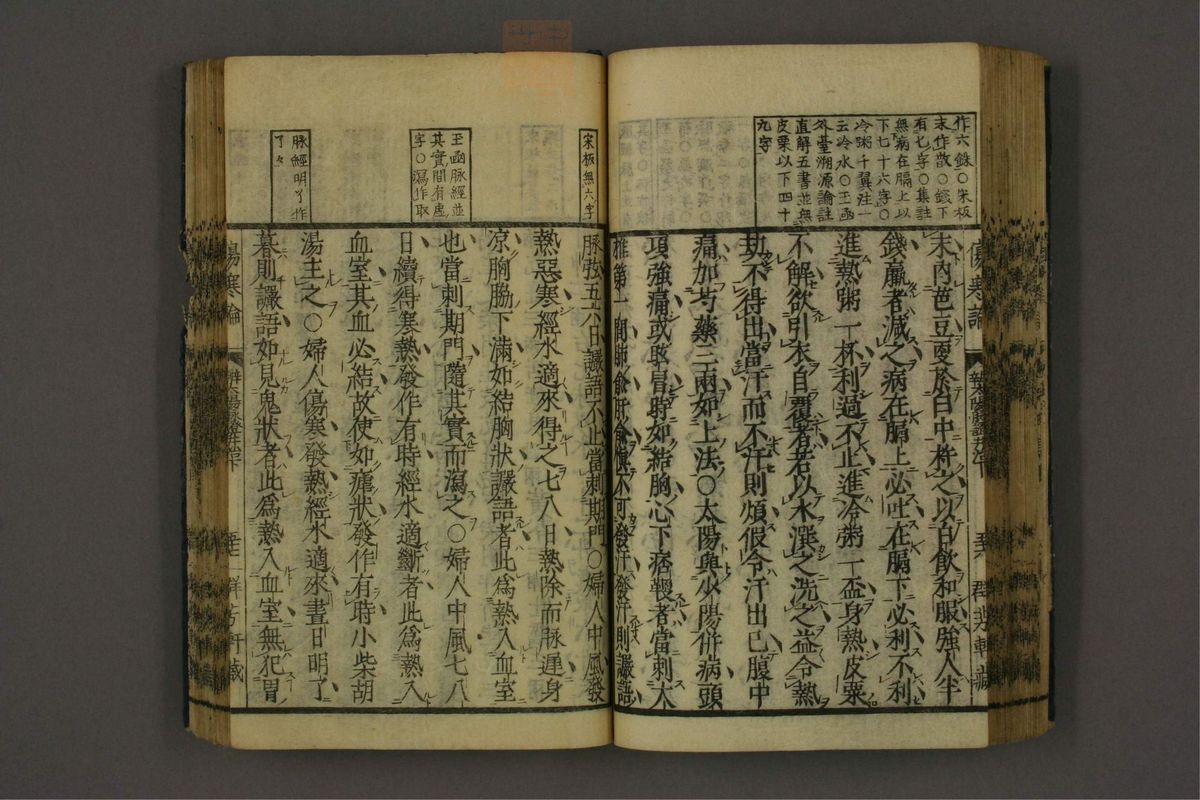 作六銖〇宋板
末作散〇錢下
有七字〇集註
無病在膈上以
下七十六字〇
冷粥千翼注一
云冷水〇玉函
外臺溯源論註
直解五書並無
皮粟以下四十
九字
傷寒論
末內芭豆更於臼中杵之以白飲和服強人半
錢羸者減之病在膈上必吐在膈下必利不利
進熱粥一杯利過不止進冷粥一盃身熱皮粟
不解欲引衣自覆者若以水潠之洗之益令熱
劫不得出當汗而不汗則煩假令汗出已腹中
痛加芍藥三兩如上法〇太陽與少陽併病頭
項強痛或眩冒時如結胸心下痞鞕者當刺大
椎第一間肺兪肝兪愼不可發汗發汗則讝語
宋板無六字
玉函脉經並
其實間有虛
字〇瀉作取
脉經明了作
了々
脉弦五六日讝語不止當刺期門〇婦人中風發
熱惡寒經水適來得之七八日熱除而脉遲身
凉胸脇下滿如結胸狀讝語者此爲熱入血室
也當刺期門隨其實而瀉之〇婦人中風七八
日續得寒熱發作有時經水適斷者此爲熱入
血室其血必結故使如瘧狀發作有時小柴胡
湯主之〇婦人傷寒發熱經水適來晝日明了
暮則讝語如見鬼狀者此爲熱入血室無犯胃
傷寒論
群芳軒藏